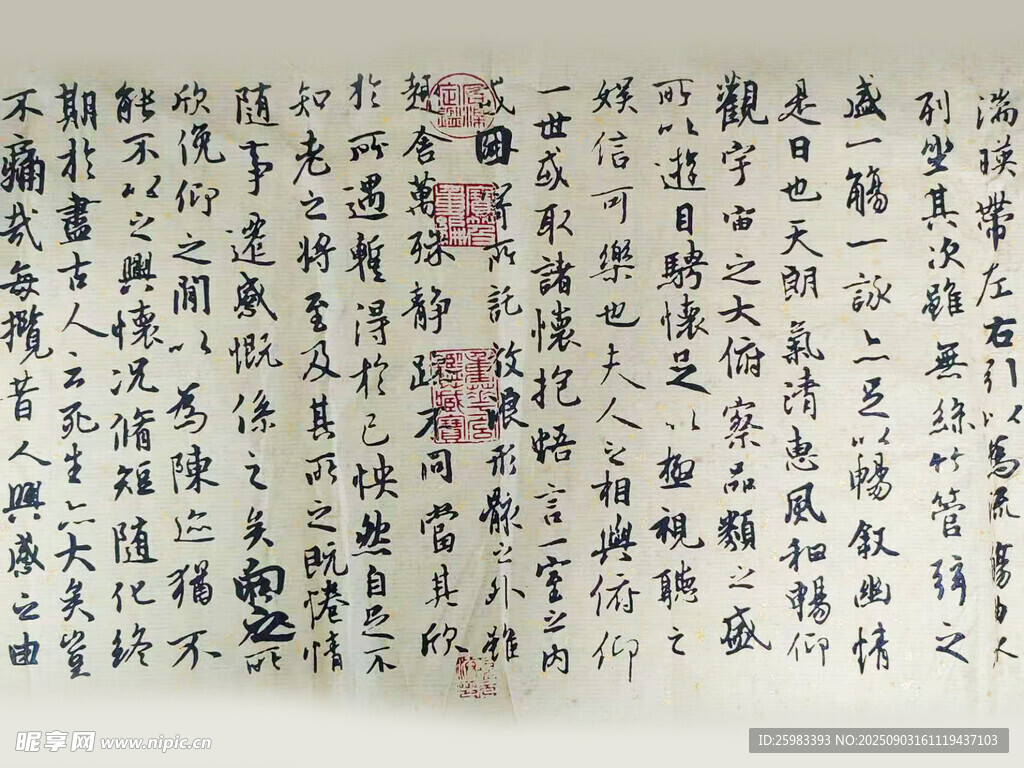 湍暎帶左右引以為流觴曲水
列坐其次雖無絲竹管弦之
盛一觴一詠亦足以暢叙幽情
是日也天朗氣清惠風和暢仰
觀宇宙之大俯察品類之盛
所以遊目騁懷足以極視聽之
娛信可樂也夫人之相與俯仰
一世或取諸懷抱悟言一室之内
或因寄所託放浪形骸之外雖
趣舍萬殊静躁不同當其欣
於所遇暫得於己怏然自足不
知老之將至及其所之既惓情
随事遷感慨係之矣向之所
欣俛仰之間以為陳迹猶不
能不以之興懷況脩短随化終
期於盡古人云死生亦大矣豈
不痛哉每攬昔人興感之由
昵享网 www.nipic.cn
ID:25983393 NO:20250903161119437103